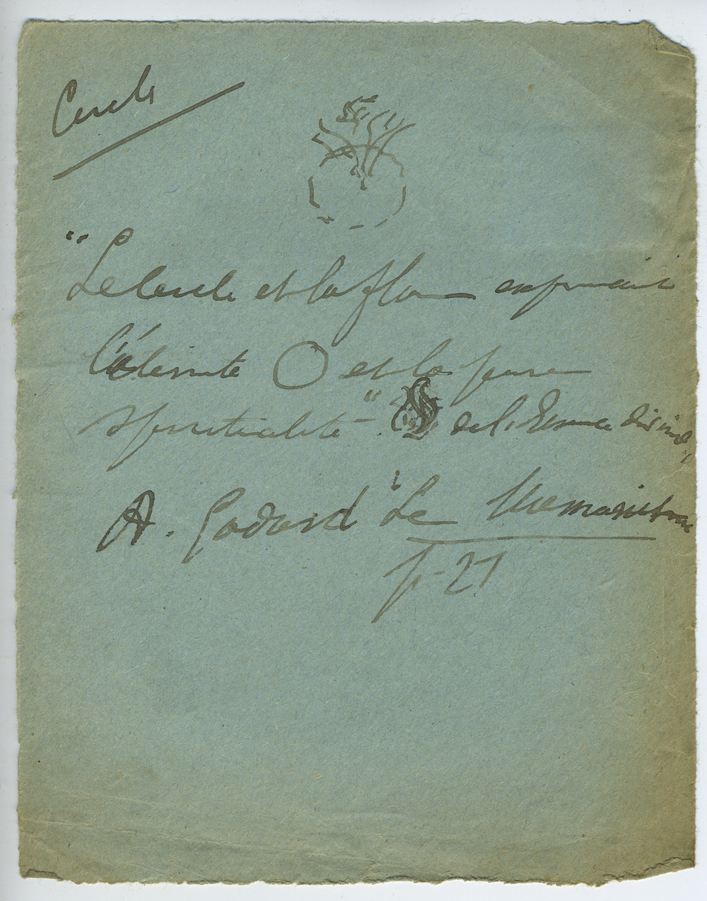 Cercle
"Le cercle et la fleur expriment
l'éternité et la pure
spiritualité" de l'Essence divine
A. Godard "Le
p. 21